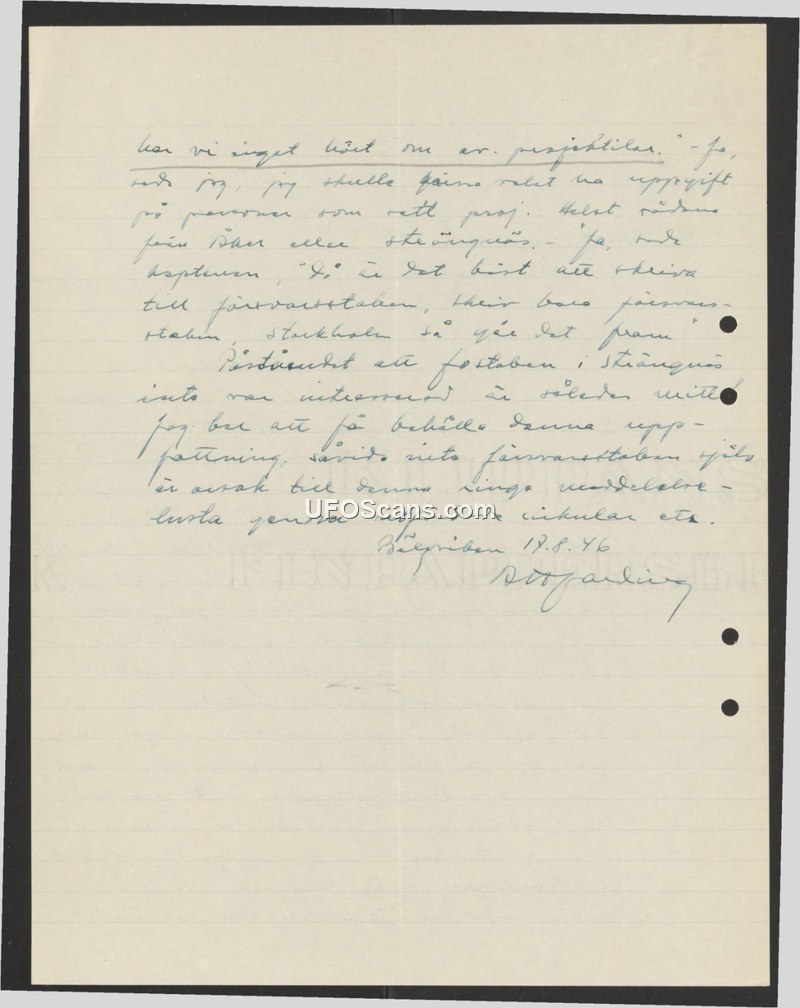 har vi inget hört om av projektiler." – Ja,
sade jag, jag skulle gärna velat ha uppgift
på personer som sett proj. Helst sådana
från Åker eller Strängnäs. – "Ja, sade
kaptenen, "då är det bäst att skriva
till försvarsstaben, skriv bara försvars-
staben, Stockholm så går det fram"
Påståendet att fostaben i Strängnäs
inte var intresserad är således mitt
Jag ber att få behålla denna upp-
fattning, såvida inte försvarsstaben själv
är orsak till denna ringa meddelelse-
lusta genom cirkulär etc.
17.8.46
UFOScans.com